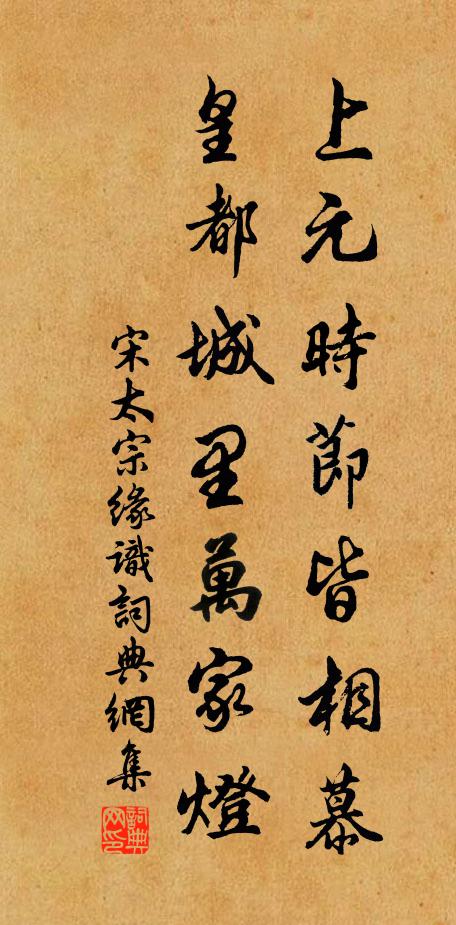 上元時節皆相慕
皇都城里萬家燈
宋太宗緣識詞典網集
詞典网印